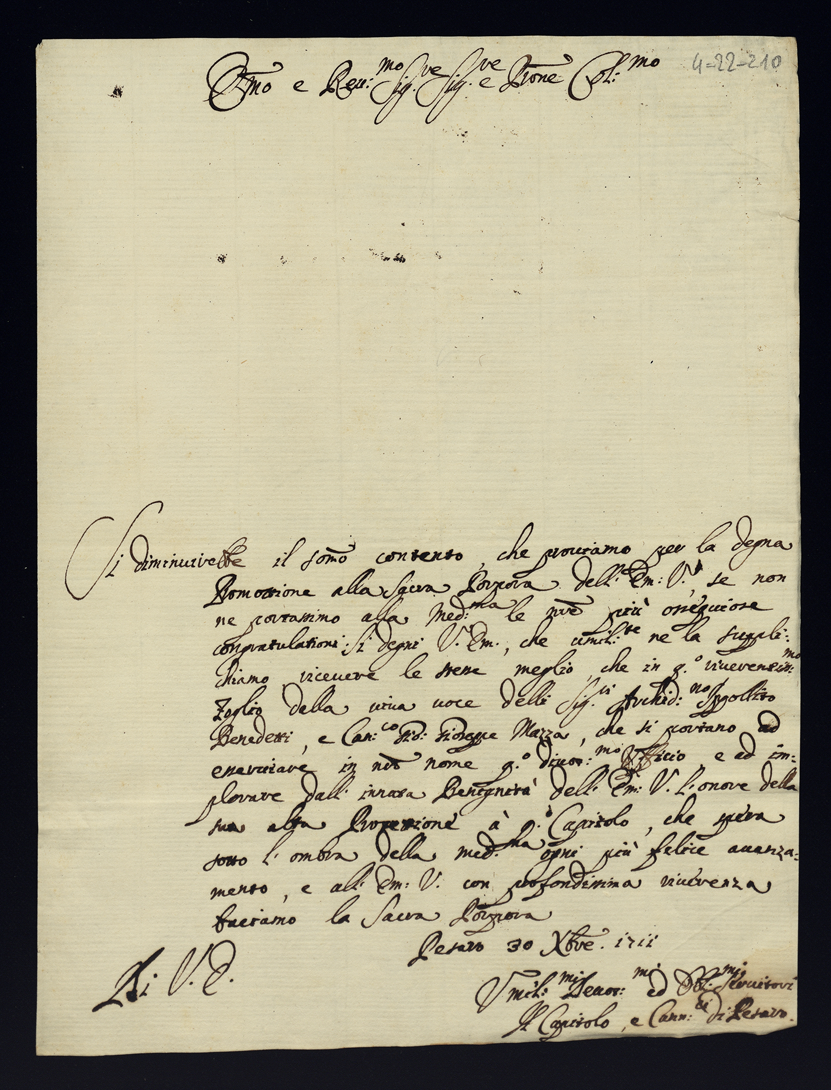 Emo e Reu:mo Sig.re Sig.re e Prone Col:mo 4-22-210
Si diminuirebbe il somo contento, che prouiamo per la degna
Promotione alla Sacra Porpora dell' Em: V., se non
ne portassimo alla Med:ma le nre più ossequiose
congratulationi: Si degni V. Em., che umil:te ne la suppli:
chiamo riceuere le stesse meglio, che in q.o riuerentiss:mo
Foglio dalla uiua uoce delli Sig.ri Archid:no Ippollito
Benedetti, e Can:co Gioseppe Mazza, che si portano ad
esercitare in nro nome q.o diuot:mo Uffício, e ad im:
plorare dall' innata Benignità dell' Em: V. l'onore della
sua alta Protettione à q.o Capitolo, che spera
sotto l'ombra della med:ma ogni più felice auanza:
mento, e all' Em: V. con profondissima riuerenza
baciamo la Sacra Porpora
Pesaro 30 Xbre. 1711
Di V. E.
Umil:mi Deuot:mi ed Obl:mi Seruitori
Il Capitolo, e Cann:ci di Pesaro.